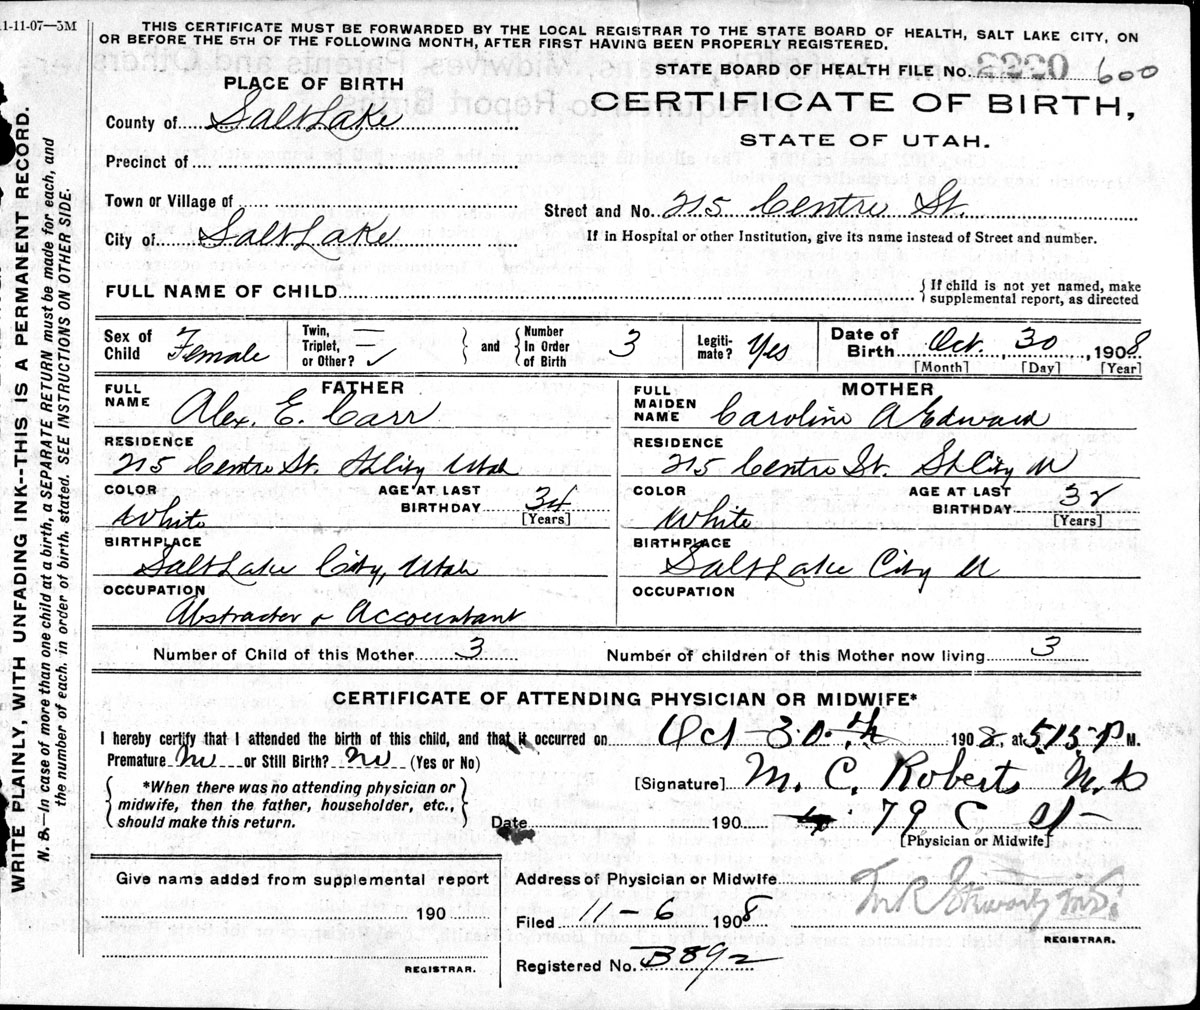 11-11-07—3M
THIS CERTIFICATE MUST BE FORWARDED BY THE LOCAL REGISTRAR TO THE STATE BOARD OF HEALTH, SALT LAKE CITY, ON
OR BEFORE THE 5TH OF THE FOLLOWING MONTH, AFTER FIRST HAVING BEEN PROPERLY REGISTERED.
STATE BOARD OF HEALTH FILE No. 600
PLACE OF BIRTH
CERTIFICATE OF BIRTH,
STATE OF UTAH.
County of Salt Lake
Precinct of
Town or Village of
Street and No. 215 Centre St.
City of Salt Lake
If in Hospital or other Institution, give its name instead of Street and number.
FULL NAME OF CHILD { If child is not yet named, make
supplemental report, as directed
Sex of Child Female
Twin, Triplet, or Other? and Number In Order of Birth 3
Legiti-mate? Yes
Date of Birth Oct. 30, 1908
[Month] [Day] [Year]
FATHER
FULL NAME Alex. E. Carr
MOTHER
FULL MAIDEN NAME Caroline A Edward
RESIDENCE
215 Centre St. S L City Utah
RESIDENCE
215 Centre St. S L City U
COLOR White AGE AT LAST BIRTHDAY 34 [Years]
COLOR White AGE AT LAST BIRTHDAY 32 [Years]
BIRTHPLACE
Salt Lake City, Utah
BIRTHPLACE
Salt Lake City U
OCCUPATION
Abstracter & Accountant
OCCUPATION
Number of Child of this Mother 3 Number of children of this Mother now living 3
CERTIFICATE OF ATTENDING PHYSICIAN OR MIDWIFE*
I hereby certify that I attended the birth of this child, and that it occurred on Oct 30th 1908, at 515 P M.
Premature No or Still Birth? No (Yes or No)
*When there was no attending physician or
midwife, then the father, householder, etc.,
should make this return.
[Signature] M. C. Roberts M.D
Date 190 79 C St
[Physician or Midwife]
Give name added from supplemental report
190
REGISTRAR.
Address of Physician or Midwife
Filed 11-6 1908
REGISTRAR.
Registered No. B892
WRITE PLAINLY, WITH UNFADING INK--THIS IS A PERMANENT RECORD.
N. B.—In case of more than one child at a birth, a SEPARATE RETURN must be made for each, and
the number of each, in order of birth, stated. SEE INSTRUCTIONS ON OTHER SIDE.